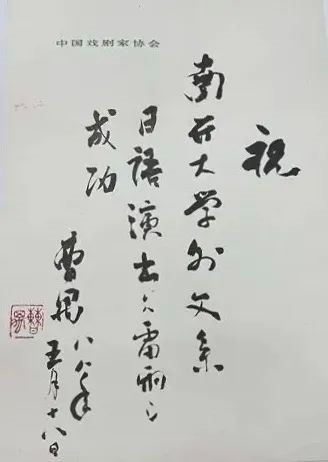 中国戏剧家协会
祝
南开大学外文系
日语演出《雷雨》
成功
曹禺 八八年
五月十八日